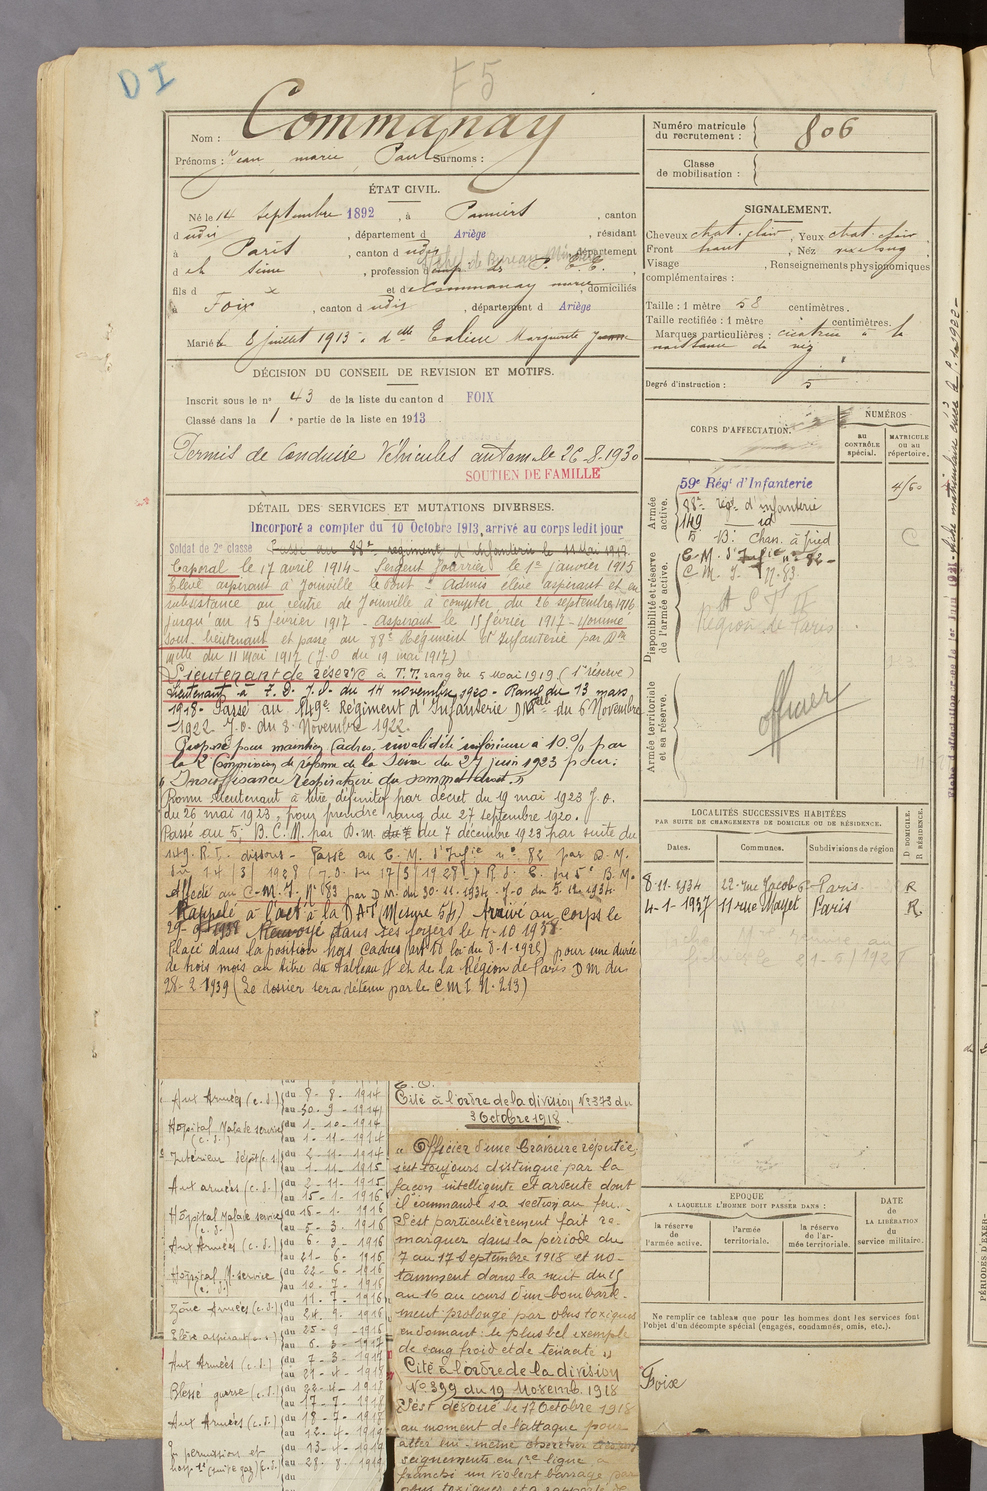 D I
F5
Nom : Commanay
Prénoms : Jean marie Paul Surnoms :
ÉTAT CIVIL.
Né le 14 septembre 1892, à Pamiers, canton
d udit, département d Ariège, résidant
à Paris, canton d udit, département
d e la Seine, profession d emp. de
fils d x et de Commanay marie, domiciliés
à Foix, canton d udit, département d Ariège
Marié le 8 juillet 1913 à dlle Marguerite Jeanne
DÉCISION DU CONSEIL DE REVISION ET MOTIFS.
Inscrit sous le n° 43 de la liste du canton d FOIX
Classé dans la 1e partie de la liste en 1913
Permis de Conduire Véhicules autom. le 26-8-1930
SOUTIEN DE FAMILLE
DÉTAIL DES SERVICES ET MUTATIONS DIVERSES.
Incorporé a compter du 10 Octobre 1913, arrivé au corps ledit jour
Soldat de 2e classe Passé au 88e regiment d'Infanterie le 11 Mai 1917
Caporal le 17 avril 1914 - Sergent Fourrier le 1er janvier 1915
Elève aspirant à Joinville le Pont - Admis élève aspirant et en
subsistance au centre de Joinville à compter du 26 septembre 1916
jusqu'au 15 février 1917 - Aspirant le 15 février 1917 - Nommé
sous-lieutenant et passé au 88e Régiment d'Infanterie par Don
Mlle du 11 Mai 1917 (J.O du 19 mai 1917)
Lieutenant de réserve à T.T. rang du 5 Mai 1919 (1e réserve)
Lieutenant à T.D. J.O. du 14 novembre 1920 - Rang du 13 mars
1918. Passé au 149e Régiment d'Infanterie DMelle du 6 Novembre
1922 J.o. du 8 Novembre 1922.
Proposé pour maintien Cadres, invalidité inférieure à 10 % par
la 2e Commission de réforme de la Seine du 27 juin 1923 pour:
"Insuffisance respiratoire du sommet droit"
Promu lieutenant à titre définitif par décret du 19 mai 1923 J.o.
du 26 mai 1923, pour prendre rang du 27 septembre 1920.
Passé au 5e B.C.M. par D.m. du 7 décembre 1923 par suite du
149e R.I. dissous - Passé au C.M. d'Infie n° 82 par D.M.
du 14/3/1928 (J.O. du 17/3/1928) R.d.C. du 5e B.M.
Affecté au C.M.I. N° 83 par D M. du 30-11-1934 J.O du 5.12.1934
Rappelé à l'act. à la DAT (Mesure 54) Arrivé au corps le
29-9-1938 Renvoyé dans ses foyers le 4-10-1938
Placé dans la position hors Cadres (art. loi du 8-1-1925) pour une durée
de trois mois au titre du tableau A et de la Région de Paris DM du
28-2 1939 (Le dossier sera détenu par le CMI N. 213)
Aux Armées (c.d.) du 8-8-1914
au 30-9-1914
Hôpital Malade service (c.d.) du 1-10-1914
au 1-11-1914
Intérieur dépôt (c.s.) du 2-11-1914
au 1-11-1915
Aux armées (c.d.) du 2-11-1915
au 15-1-1916
Hôpital Malade service (c.d.) du 16-1-1916
au 5-3-1916
Aux Armées (c.d.) du 6-3-1916
au 21-6-1916
Hôpital M. service (c.d.) du 22-6-1916
au 10-7-1916
Zône Armées (c.d.) du 11-7-1916
au 24-9-1916
Elève aspirant du 25-9-1916
au 6-3-1917
Aux Armées (c.d.) du 7-3-1917
au 21-4-1918
Blessé guerre (c.d.) du 22-4-1918
au 17-7-1918
Aux Armées (c.d.) du 18-7-1918
au 12-4-1919
En permission et du 13-4-1919
hosp. (suite gaz) (c.d.) au 28-8-1919
du
Cité à l'ordre de la division N° 373 du
3 Octobre 1918.
"Officier d'une bravoure réputée,
s'est toujours distingué par la
façon intelligente et ardente dont
il commande sa section au feu.
S'est particulièrement fait re-
marquer dans la période du
7 au 17 septembre 1918 et no-
tamment dans la nuit du 15
au 16 au cours d'un bombarde-
ment prolongé par obus toxiques
en donnant le plus bel exemple
de sang froid et de ténacité"
Cité à l'ordre de la division
N° 399 du 19 Novemb. 1918
S'est dévoué le 17 Octobre 1918
au moment de l'attaque pour
aller lui-même chercher des ren-
seignements en 1re ligne, a
franchi un violent barrage par
obus toxiques et a rapporté de
Numéro matricule du recrutement : 806
Classe de mobilisation :
SIGNALEMENT.
Cheveux chat. clair, Yeux chat. clair
Front haut, Nez
Visage, Renseignements physionomiques
complémentaires :
Taille : 1 mètre 58 centimètres.
Taille rectifiée : 1 mètre centimètres.
Marques particulières : cicatrice à la
naissance du nez
Degré d'instruction : 5
CORPS D'AFFECTATION.
NUMÉROS
AU CONTRÔLE spécial.
MATRICULE ou au répertoire.
Armée active.
59e Régt d'Infanterie
4160
88e régt d'infanterie
149 id
Disponibilité et réserve de l'armée active.
5 B: Chan. à Pied
C.M. d'Infie n° 82
C M. I. N. 83
Région de Paris
Armée territoriale et sa réserve.
officier
LOCALITÉS SUCCESSIVES HABITÉES
PAR SUITE DE CHANGEMENTS DE DOMICILE OU DE RÉSIDENCE.
Dates. Communes. Subdivisions de région D. DOMICILE. R. RÉSIDENCE.
8-11-1934 22 rue Jacob 6e Paris R
4-1-1937 11 rue Mayet Paris R.
EPOQUE
A LAQUELLE L'HOMME DOIT PASSER DANS :
la réserve de l'armée active.
l'armée territoriale.
la réserve de l'armée territoriale.
DATE DE LA LIBÉRATION du service militaire.
Ne remplir ce tableau que pour les hommes dont les services font
l'objet d'un décompte spécial (engagés, condamnés, omis, etc.).
Foix
PÉRIODES D'EXER-